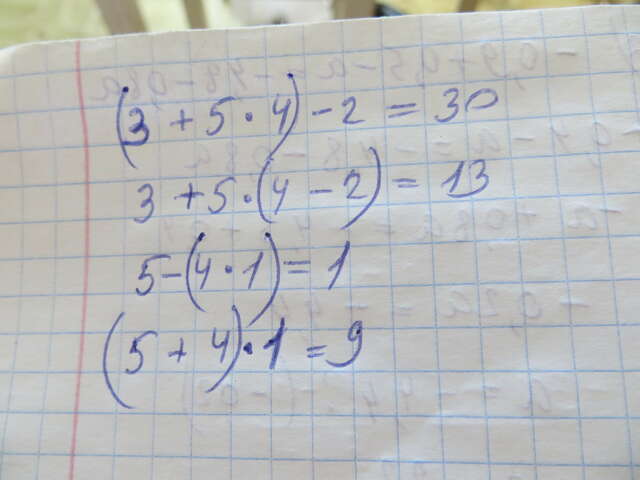 (3 + 5 · 4) - 2 = 30
3 + 5 · (4 - 2) = 13
5 - (4 · 1) = 1
(5 + 4) · 1 = 9